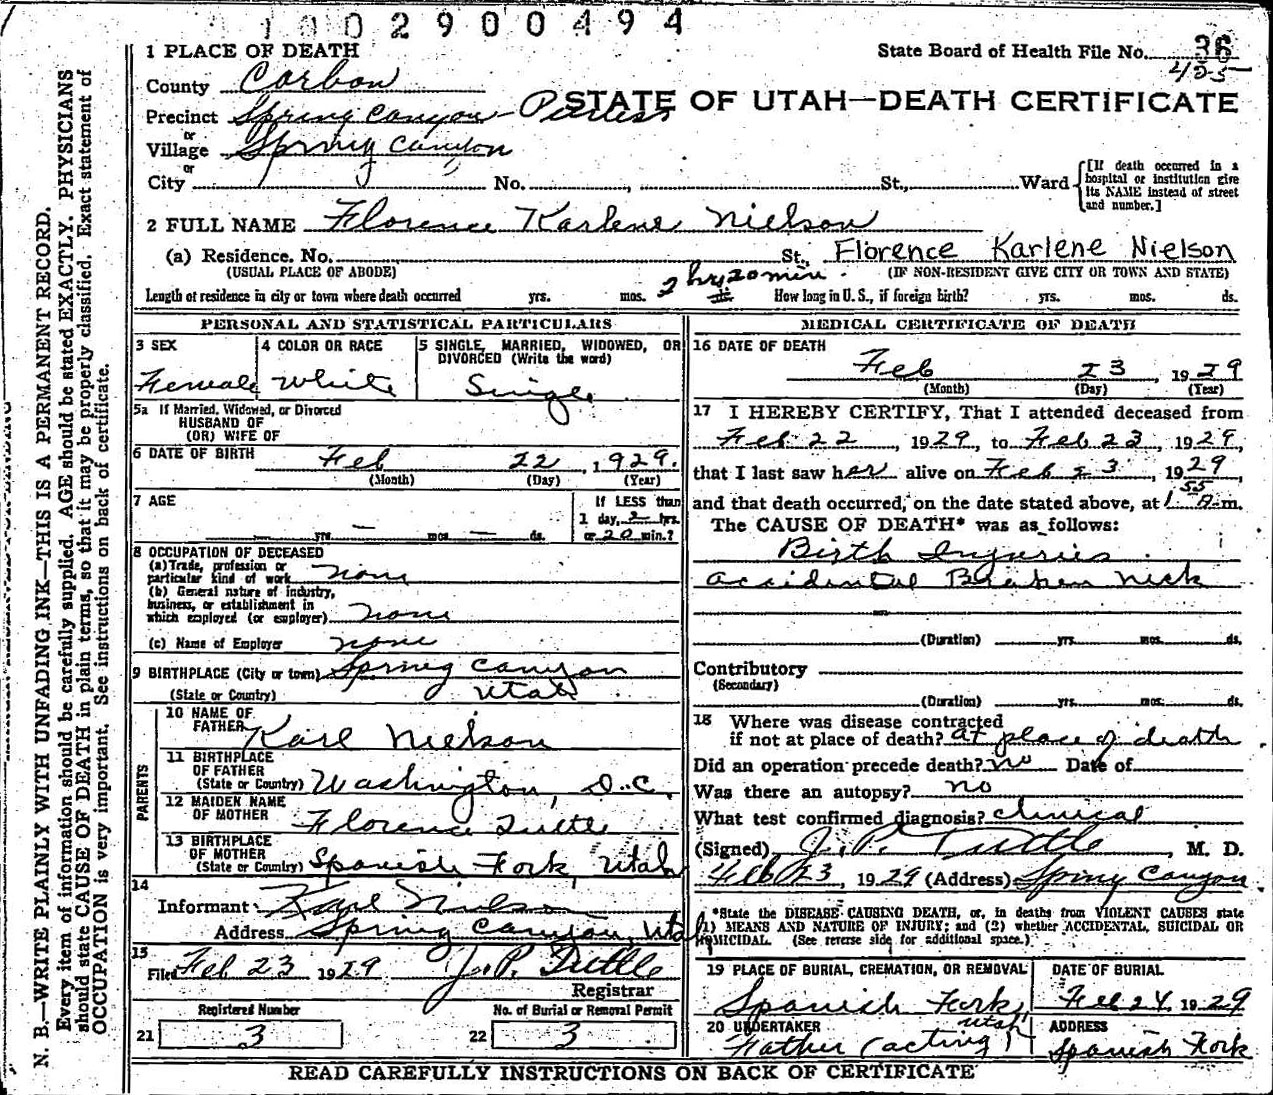 1002900494
State Board of Health File No. 36
425
1 PLACE OF DEATH
County Carbon
STATE OF UTAH—DEATH CERTIFICATE
Precinct Spring Canyon - Peerless
or
Village Spring Canyon
or
City No. , St., Ward
[If death occurred in a hospital or institution give its NAME instead of street and number.]
2 FULL NAME Florence Karlene Nielson
(a) Residence. No. St. Florence Karlene Nielson
(USUAL PLACE OF ABODE) (IF NON-RESIDENT GIVE CITY OR TOWN AND STATE)
Length of residence in city or town where death occurred yrs. mos. 2 hrs 20 min ds. How long in U. S., if foreign birth? yrs. mos. ds.
PERSONAL AND STATISTICAL PARTICULARS
3 SEX
Female
4 COLOR OR RACE
White
5 SINGLE, MARRIED, WIDOWED, OR DIVORCED (Write the word)
Single
5a If Married, Widowed, or Divorced
HUSBAND OF
(OR) WIFE OF
6 DATE OF BIRTH Feb 22, 1929.
(Month) (Day) (Year)
7 AGE
— yrs. — mos. — ds.
If LESS than
1 day, 2 hrs.
or 20 min.?
8 OCCUPATION OF DECEASED
(a) Trade, profession or
particular kind of work none
(b) General nature of industry,
business, or establishment in
which employed (or employer) none
(c) Name of Employer none
9 BIRTHPLACE (City or town) Spring Canyon
(State or Country) Utah
PARENTS
10 NAME OF
FATHER Karl Nielson
11 BIRTHPLACE
OF FATHER
(State or Country) Washington, D.C.
12 MAIDEN NAME
OF MOTHER Florence Tuttle
13 BIRTHPLACE
OF MOTHER
(State or Country) Spanish Fork, Utah
14
Informant Karl Nielson
Address Spring Canyon, Utah
15
Filed Feb 23 1929 J. P. Tuttle
Registrar
Registered Number No. of Burial or Removal Permit
21 3 22 3
MEDICAL CERTIFICATE OF DEATH
16 DATE OF DEATH
Feb 23, 1929
(Month) (Day) (Year)
17 I HEREBY CERTIFY, That I attended deceased from
Feb 22, 1929, to Feb 23, 1929,
that I last saw her alive on Feb 23, 1929,
and that death occurred, on the date stated above, at 1 55 A.m.
The CAUSE OF DEATH* was as follows:
Birth Injuries
accidental Broken neck
(Duration) yrs. mos. ds.
Contributory
(Secondary)
(Duration) yrs. mos. ds.
18 Where was disease contracted
if not at place of death? at place of death
Did an operation precede death? no Date of
Was there an autopsy? no
What test confirmed diagnosis? clinical
(Signed) J. P. Tuttle, M. D.
Feb 23, 1929 (Address) Spring Canyon
*State the DISEASE CAUSING DEATH, or, in deaths from VIOLENT CAUSES state
(1) MEANS AND NATURE OF INJURY; and (2) whether ACCIDENTAL, SUICIDAL OR
HOMICIDAL. (See reverse side for additional space.)
19 PLACE OF BURIAL, CREMATION, OR REMOVAL
Spanish Fork, Utah
DATE OF BURIAL
Feb 24 1929
20 UNDERTAKER
Father (acting)
ADDRESS
Spanish Fork
READ CAREFULLY INSTRUCTIONS ON BACK OF CERTIFICATE
N. B.—WRITE PLAINLY WITH UNFADING INK—THIS IS A PERMANENT RECORD.
Every item of information should be carefully supplied. AGE should be stated EXACTLY. PHYSICIANS
should state CAUSE OF DEATH in plain terms, so that it may be properly classified. Exact statement of
OCCUPATION is very important. See instructions on back of certificate.